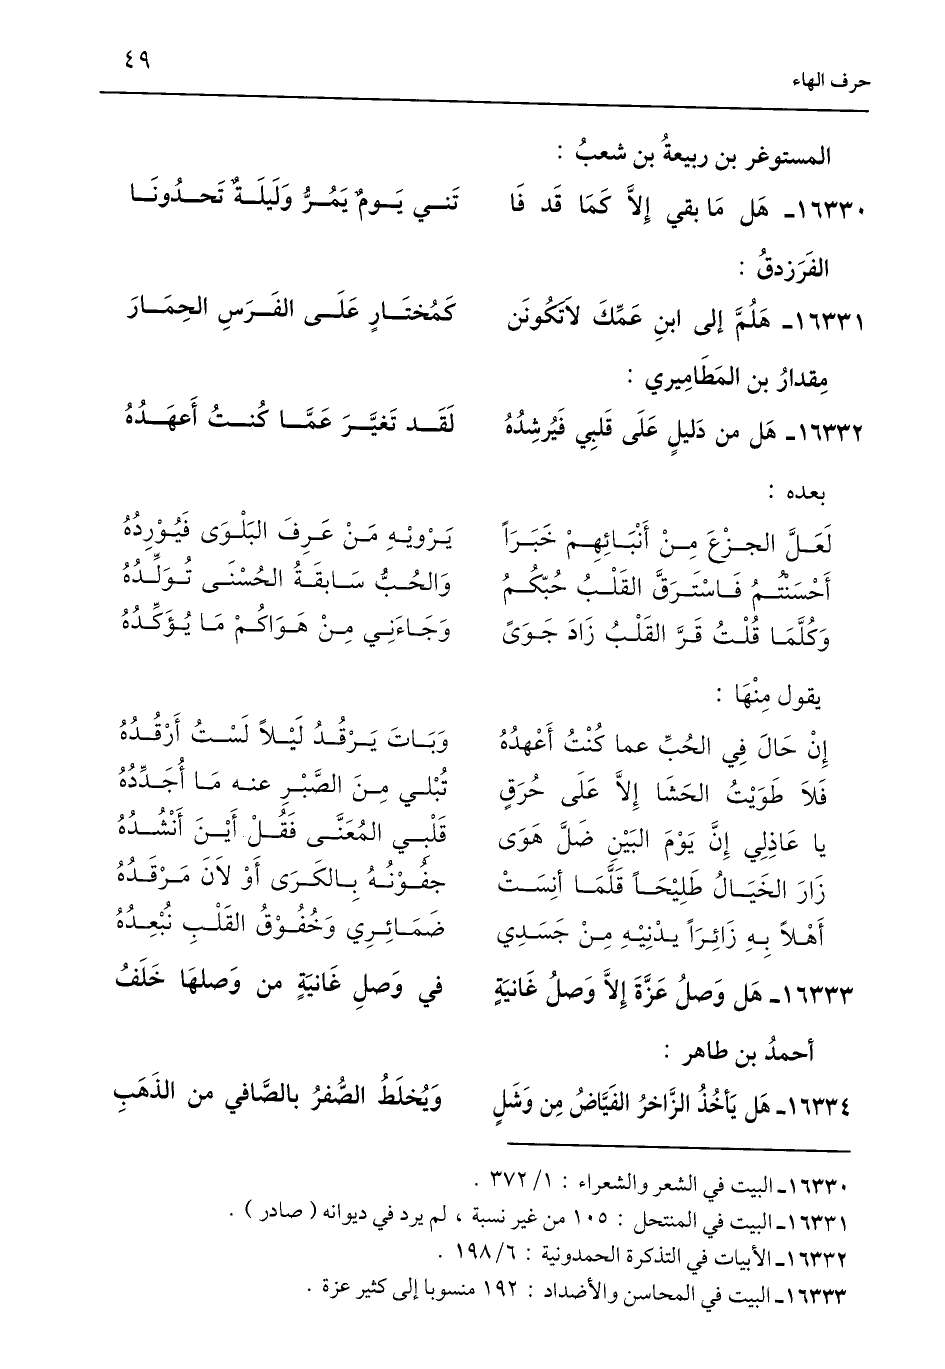 ٤٩
حرف الهاء
المستوغر بن ربيعةُ بن شعبُ :
١٦٣٣٠ـ هَل مَا بقي إِلاَّ كَمَا قَد فَا تَني يَومٌ يَمُرُّ وَلَيلَةٌ تَحدُونَا
الفَرَزدقُ :
١٦٣٣١ـ هَلُمَّ إلى ابنِ عَمِّكَ لاَتَكُونَن كَمُختَارٍ عَلَى الفَرَسِ الحِمَارَ
مِقدارُ بن المَطَامِيري :
١٦٣٣٢ـ هَل من دَليلٍ عَلَى قَلبِي فَيُرشِدُهُ لَقَد تَغيَّرَ عَمَّا كُنتُ أَعهَدُهُ
بعده :
لَعَلَّ الجزْعَ مِنْ أَنْبَائِهِمْ خَبَرَاً يَرْوِيْهِ مَنْ عَرِفَ البَلْوَى فَيُوْرِدُهُ
أَحْسَنْتُمُ فَاسْتَرَقَّ القَلْبُ حُبّكمُ وَالحُبُّ سَابِقَةُ الحُسْنَى تُوَلِّدُهُ
وَكُلَّمَا قُلْتُ قَرَّ القَلْبُ زَادَ جَوَىً وَجَاءَنِي مِنْ هَوَاكُمْ مَا يُؤَكِّدُهُ
يقول مِنْهَا :
إِنْ حَالَ فِي الحُبِّ عما كُنْتُ أَعْهدُهُ وَبَاتَ يَرْقُدُ لَيْلاً لَسْتُ أَرْقُدُهُ
فَلاَ طَوَيْتُ الحَشَا إِلاَّ عَلَى حُرَقٍ تُبْلي مِنَ الصَّبْرِ عنه مَا أُجَدِّدُهُ
يا عَاذِلِي إِنَّ يَوْمَ البَيْنِ ضَلَّ هَوَى قَلْبِي المُعَنَّى فَقُلْ أَيْنَ أَنْشُدُهُ
زَارَ الخَيَالُ طَلِيْحَاً قَلَّمَا أَنِسَتْ جفُوْنُهُ بِالكَرَى أَوْ لاَنَ مَرْقَدُهُ
أَهْلاً بِهِ زَائِرَاً يدْنِيْهِ مِنْ جَسَدِي ضَمَائِرِي وَخُفُوْقُ القَلْبِ تُبْعِدُهُ
١٦٣٣٣ـ هَل وَصلُ عَزَّةَ إِلاَّ وَصلُ غَانيَةٍ في وَصلِ غَانيَةٍ من وَصلهَا خَلَفُ
أحمدُ بن طاهر :
١٦٣٣٤ـ هَل يَأخُذُ الزَّاخرُ الفَيَّاضُ مِن وَشَلٍ وَيُخلَطُ الصُّفرُ بالصَّافي من الذَهَبِ
١٦٣٣٠ـ البيت في الشعر والشعراء : ١/ ٣٧٢ .
١٦٣٣١ـ البيت في المنتحل : ١٠٥ من غير نسبة ، لم يرد في ديوانه ( صادر ) .
١٦٣٣٢ـ الأبيات في التذكرة الحمدونية : ٦/ ١٩٨ .
١٦٣٣٣ـ البيت في المحاسن والأضداد : ١٩٢ منسوبا إلى كثير عزة .